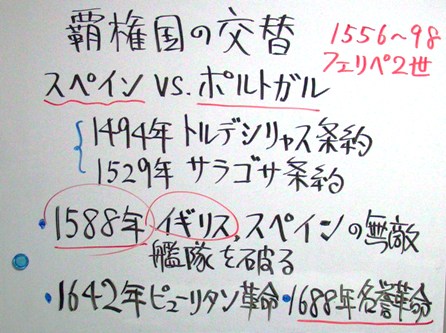 覇権国の交替
1556～98
フェリペ2世
スペイン VS. ポルトガル
1494年 トルデシリャス条約
1529年 サラゴサ条約
・1588年 イギリス, スペインの無敵
艦隊を破る
・1642年ピューリタン革命・1688年名誉革命